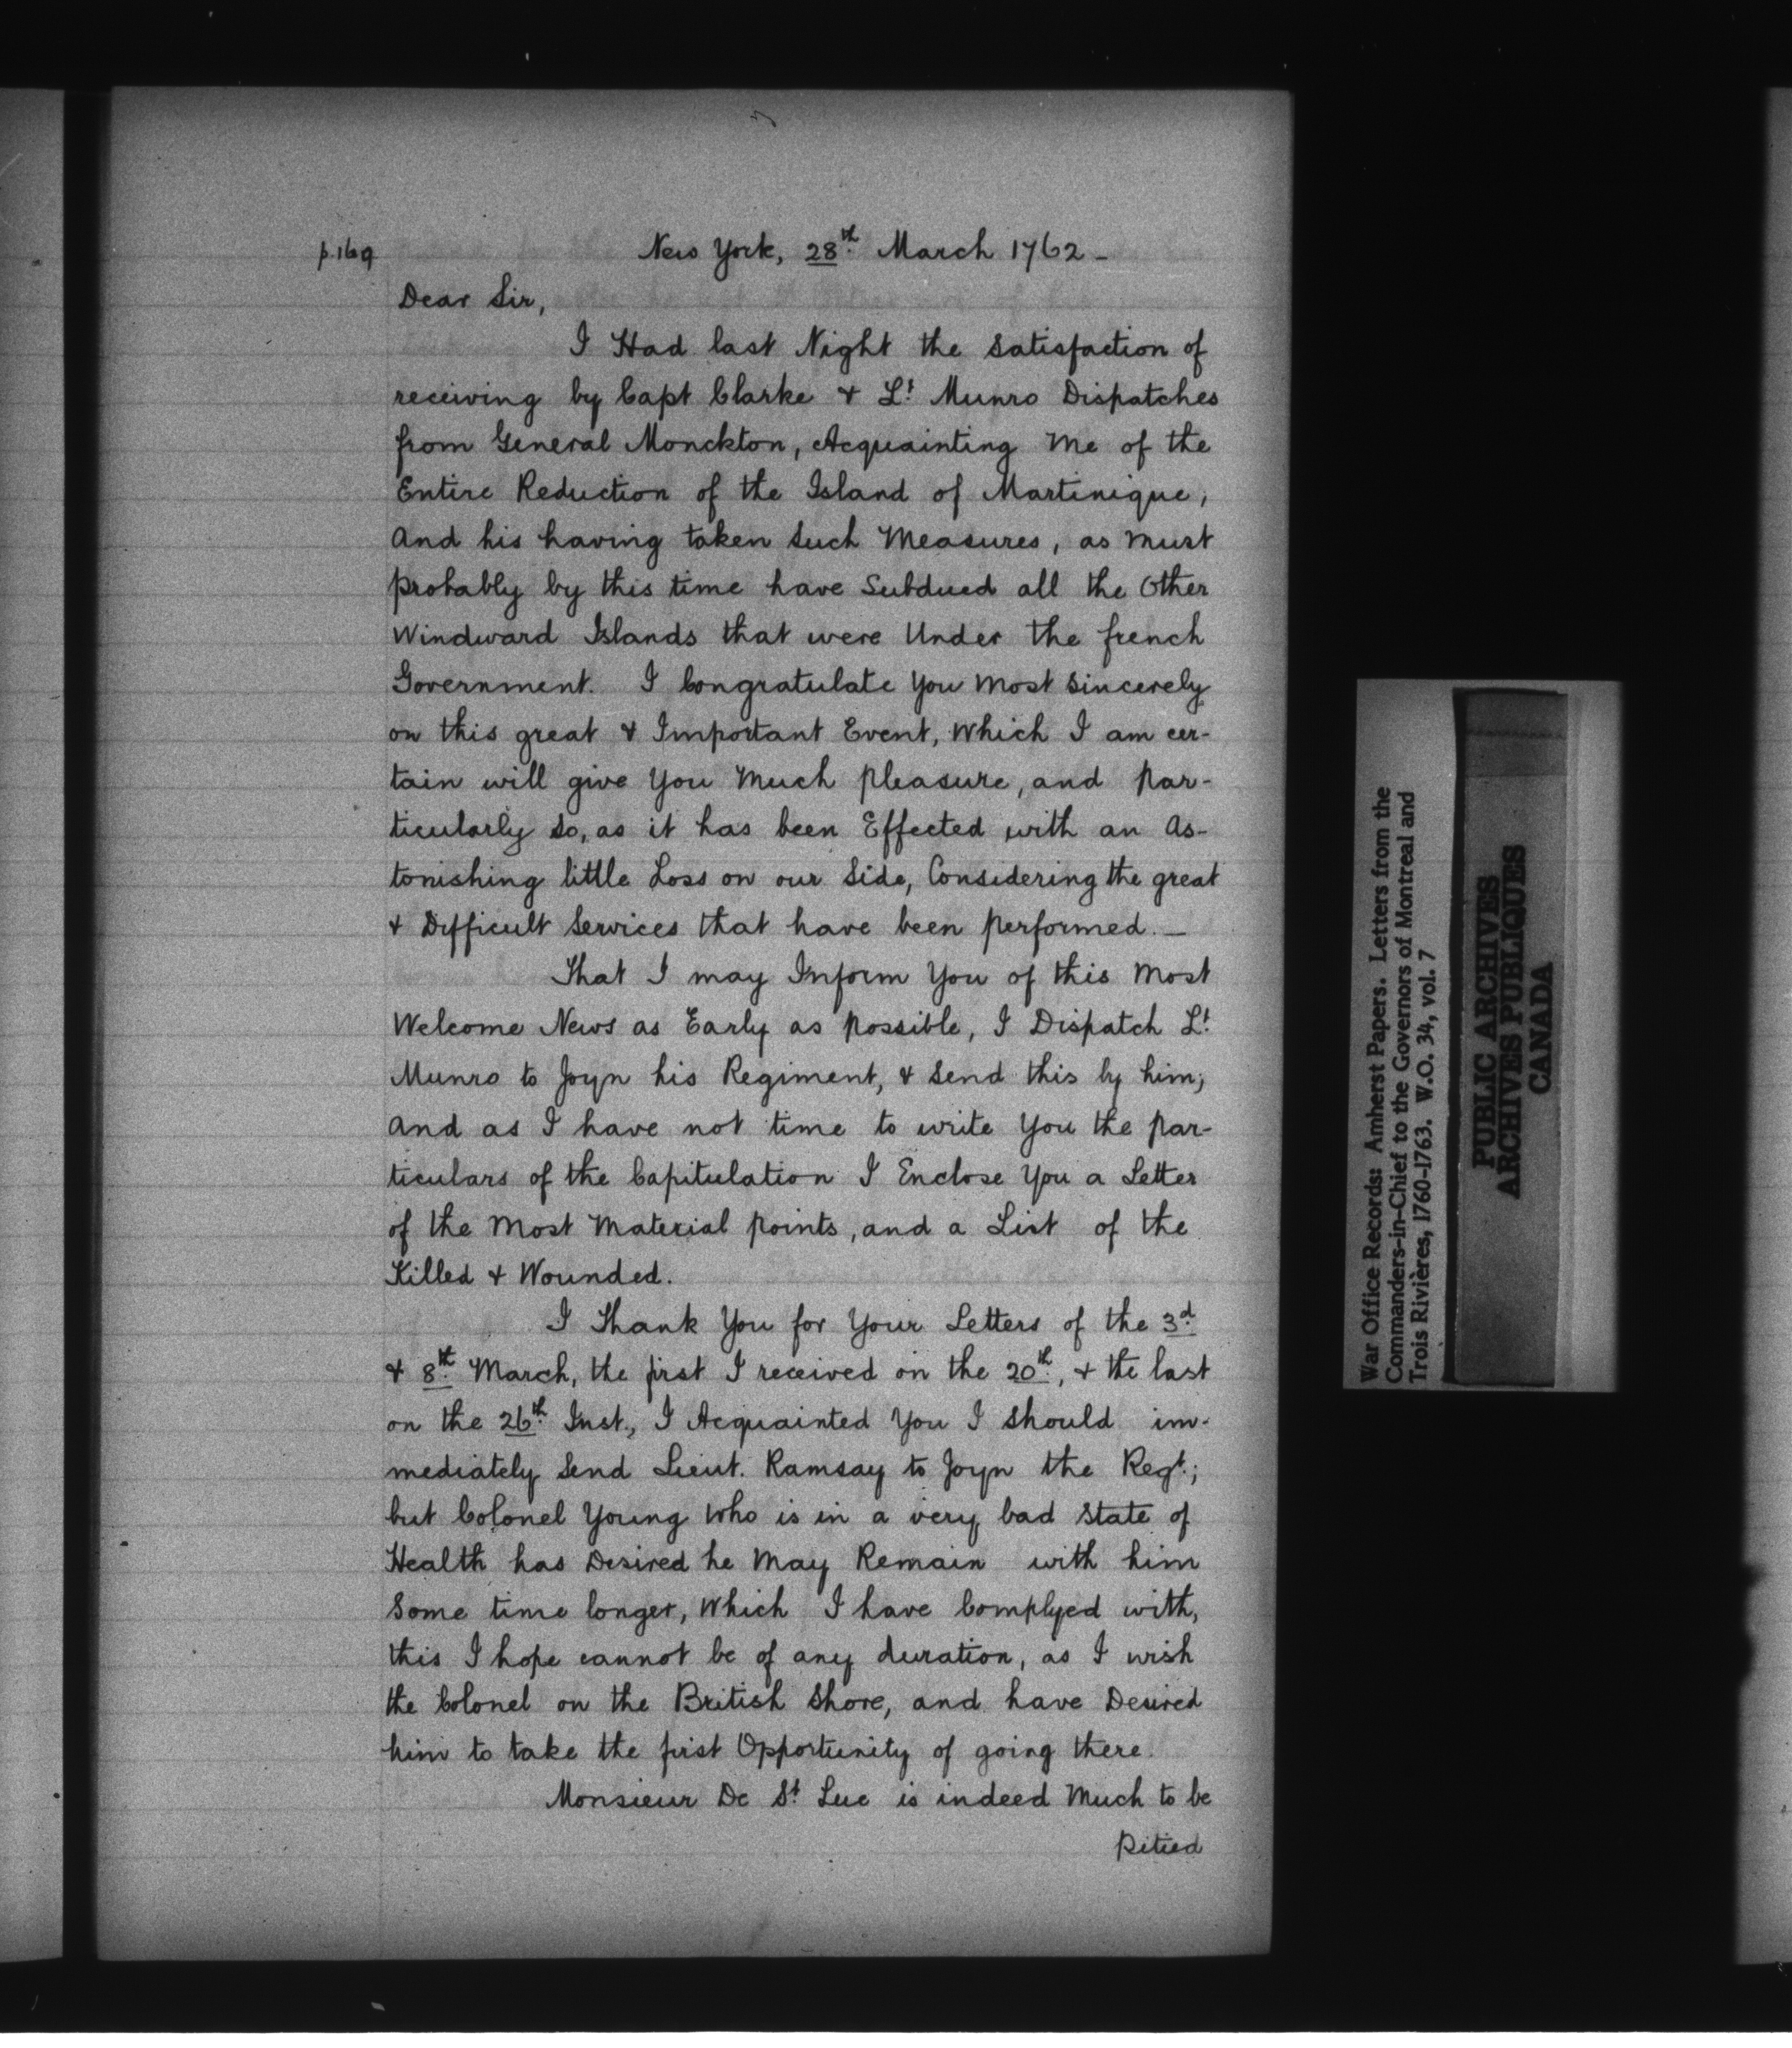 p.169
New York, 28th March 1762 -
Dear Sir,
I Had last Night the Satisfaction of
receiving by Capt Clarke & Lt Munro Dispatches
from General Monckton, Acquainting Me of the
Entire Reduction of the Island of Martinique,
And his having taken Such Measures, as Must
probably by this time have Subdued all the Other
Windward Islands that were Under the french
Government. I Congratulate You Most Sincerely
on this great & Important Event, Which I am cer-
tain will give You Much pleasure, and par-
ticularly So, as it has been Effected with an As-
tonishing little Loss on our Side, Considering the great
& Difficult Services that have been performed. —
That I may Inform You of this Most
Welcome News as Early as possible, I Dispatch Lt
Munro to Joyn his Regiment, & Send this by him;
And as I have not time to write You the par-
ticulars of the Capitulation I Enclose You a Letter
of the Most Material points, and a List of the
Killed & Wounded.
I Thank You for Your Letters of the 3d
& 8th March, the first I received on the 20th, & the last
on the 26th Inst., I Acquainted You I Should im-
mediately Send Lieut. Ramsay to Joyn the Regt;
but Colonel Young Who is in a very bad State of
Health has Desired he May Remain with him
Some time longer, Which I have Complyed with,
this I hope cannot be of any duration, as I wish
the Colonel on the British Shore, and have Desired
him to take the first Opportunity of going there.
Monsieur De St Luc is indeed Much to be
Pitied
War Office Records: Amherst Papers. Letters from the
Commanders-in-Chief to the Governors of Montreal and
Trois Rivières, 1760-1763. W.O. 34, vol. 7
PUBLIC ARCHIVES
ARCHIVES PUBLIQUES
CANADA